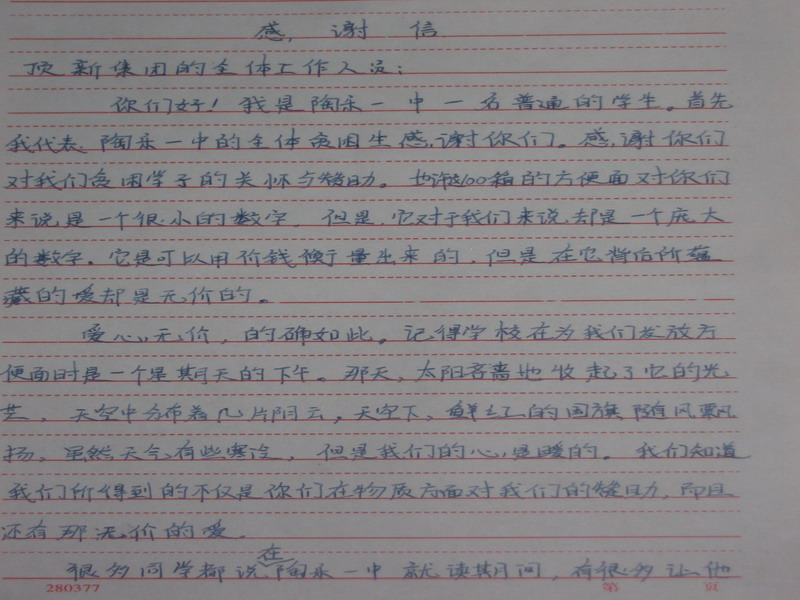 感谢信
顶新集团的全体工作人员:
你们好!我是陶乐一中一名普通的学生。首先
我代表陶乐一中的全体贫困生感谢你们。感谢你们
对我们贫困学子的关怀与帮助。也许500箱的方便面对你们
来说是一个很小的数字,但是,它对于我们来说却是一个庞大
的数字。它是可以用价钱衡量出来的,但是在它背后所蕴
藏的爱却是无价的。
爱心无价,的确如此。记得学校在为我们发放方
便面时是一个星期天的下午。那天,太阳吝啬地收起了它的光
芒,天空中分布着几片阴云,天空下,鲜红的国旗随风飘
扬,虽然天气有些寒冷,但是我们的心是暖的。我们知道
我们所得到的不仅是你们在物质方面对我们的帮助,而且
还有那无价的爱。
在
很多同学都说陶乐一中就读期间,有很多让他
280377 第 页